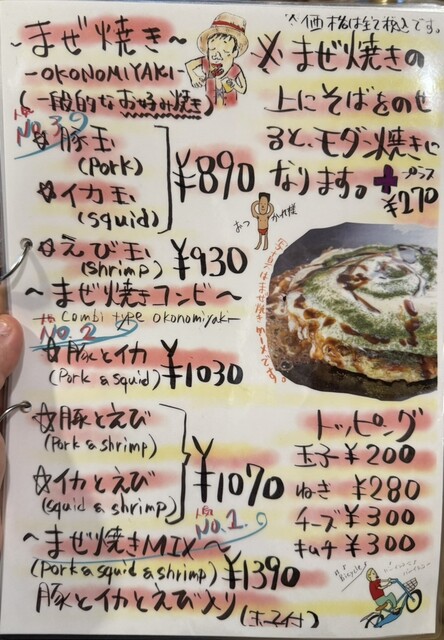 ～まぜ焼き～
-OKONOMIYAKI-
(一般的なお好み焼き)
人気No.3
☆豚玉
(pork)
☆イカ玉
(squid)
¥890
☆えび玉
(shrimp)
¥930
～まぜ焼きコンビ～
Combi type okonomiyaki
人気No.2
☆豚とイカ
(Pork & squid)
¥1030
☆豚とえび
(Pork & shrimp)
☆イカとえび
(squid & shrimp)
¥1070
人気No.1
～まぜ焼きMIX～
(Pork & squid & shrimp)
¥1390
豚とイカとえび入り
※価格は全て税込です。
※まぜ焼きの
上にそばをのせ
ると、モダン焼きに
なります。+プラス
¥270
おつかれ様
トッピング
玉子 ¥200
ねぎ ¥280
チーズ ¥300
キムチ ¥300
Bicycle